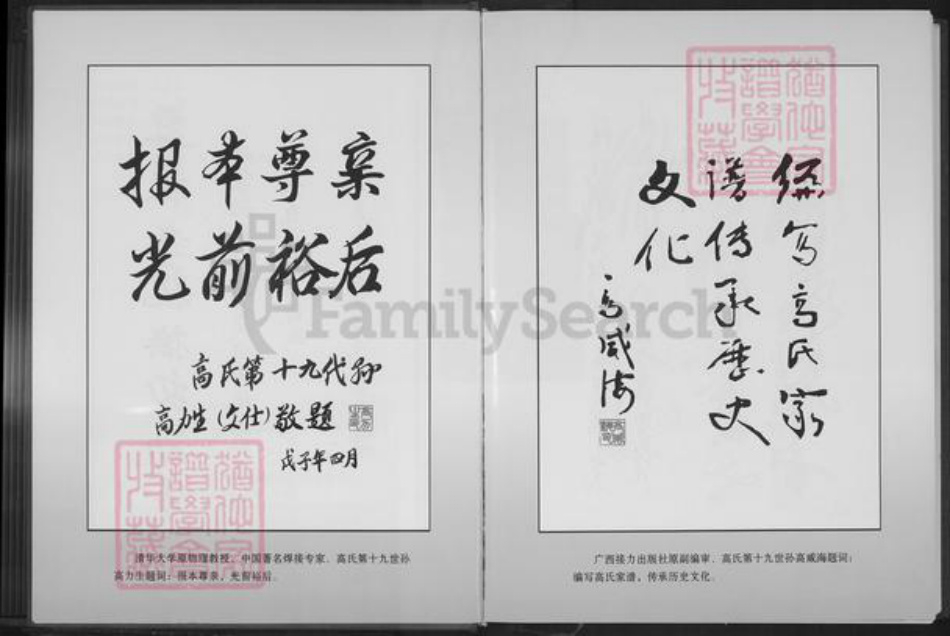 报本尊亲
光前裕后
高氏第十九代孙
高力生(文仕)敬题
戊子年四月
清华大学原物理教授、中国著名焊接专家、高氏第十九世孙
高力生题词：报本尊亲，光前裕后。
编写高氏家
谱传承历史
文化
高威海
广西接力出版社原副编审、高氏第十九世孙高威海题词：
编写高氏家谱，传承历史文化。
FamilySearch